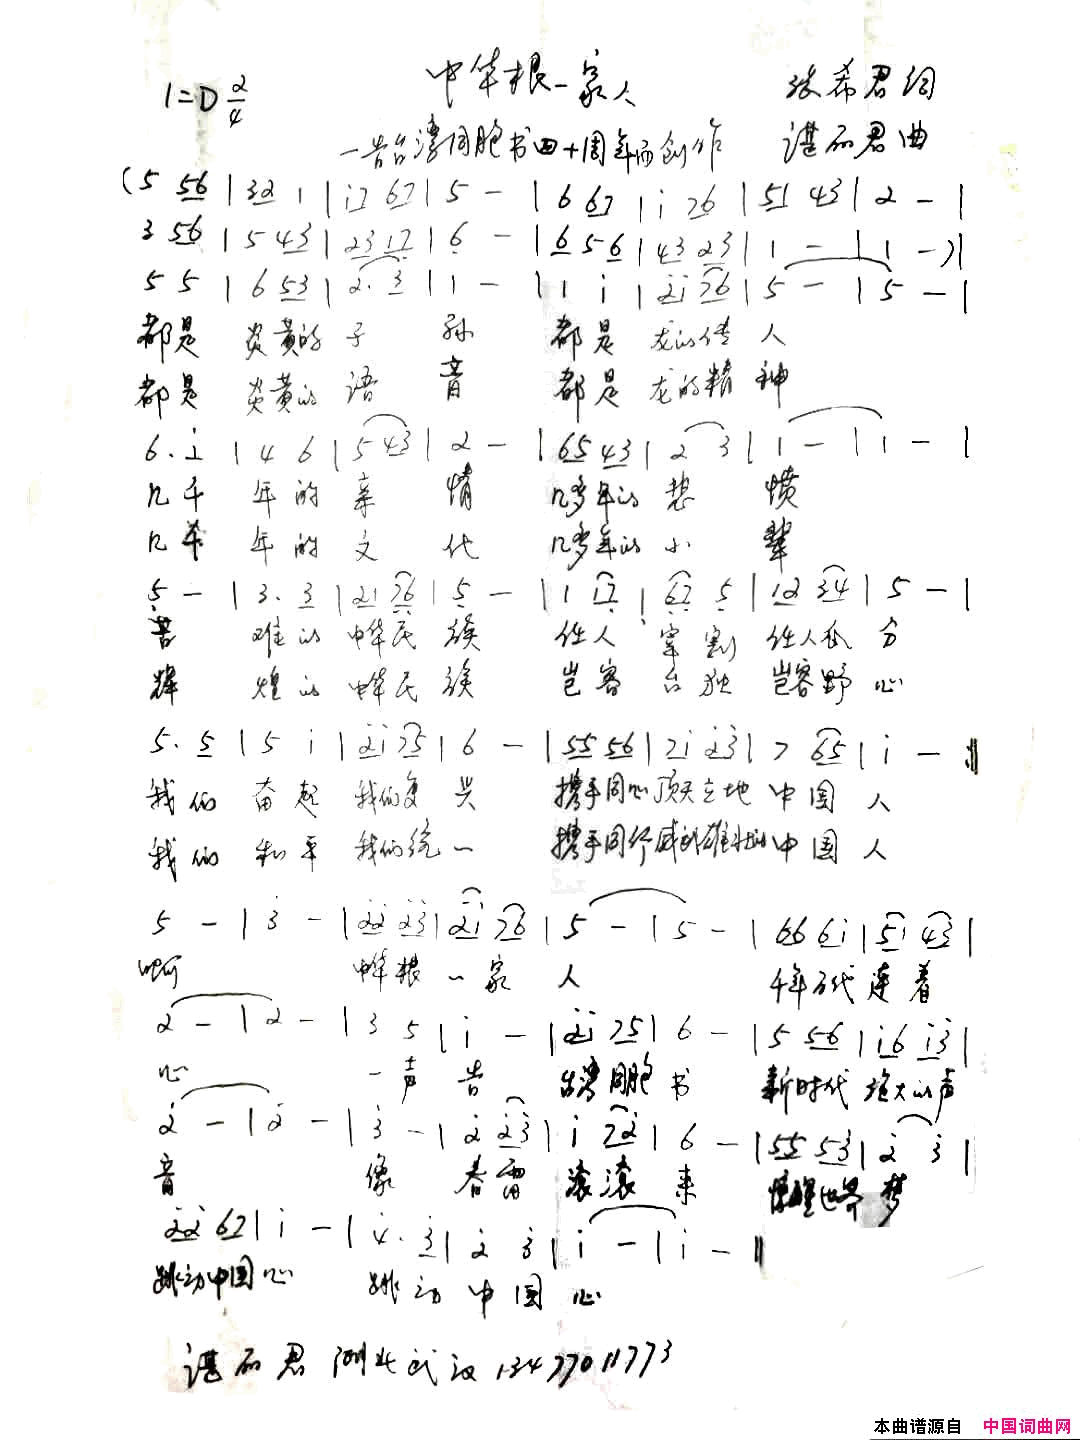 1=D 2/4 中华根一家人 张希君词
—告台湾同胞书四十周年而创作 谌丽君曲
(5 56 | 32 1 | i7 67 | 5 - | 6 67 | i 76 | 51 43 | 2 - |
3 56 | 5 43 | 23 17 | 6 - | 6 56 | 43 23 | 1 - | 1 -) |
5 5 | 6 53 | 2· 3 | 1 - | 1 i | 2i 76 | 5 - | 5 - |
都是 炎黄的 子 孙 都是 龙的传 人
都是 炎黄的 语 音 都是 龙的精 神
6· i | 4 6 | 5 43 | 2 - | 65 43 | 2 3 | 1 - | 1 - |
几千 年的 亲 情 几多年的 愁 愤
几千 年的 文 化 几多年的 小 辈
5 - | 3· 3 | 21 76 | 5 - | 1 17 | 67 5 | 12 34 | 5 - |
苦 难的 中华民 族 任人 宰割 任人瓜 分
辉 煌的 中华民 族 岂容 台独 岂容野 心
5· 5 | 5 i | 2i 75 | 6 - | 55 56 | 7i 23 | 7 65 | i - :‖
我们 奋起 我们复 兴 携手同心 顶天立地 中国 人
我们 和平 我们统 一 携手同行 威武雄壮的 中国 人
5 - | 3 - | 22 23 | 2i 76 | 5 - | 5 - | 66 6i | 5i 43 |
啊 中华根 一家 人 千年万代 连着
2 - | 2 - | 3 5 | i - | 2i 75 | 6 - | 5 56 | i6 i3 |
心 一声 告 台湾同胞 书 新时代 绝大的声
2 - | 2 - | 3 - | 2 23 | i 72 | 6 - | 55 53 | 2 3 |
音 像 春雷 滚滚 来 惊醒世界 梦
22 67 | i - | 4· 3 | 2 3 | i - | i - ‖
跳动中国 心 跳动 中国 心
谌丽君 湖北武汉 13477011773
本曲谱源自 中国词曲网